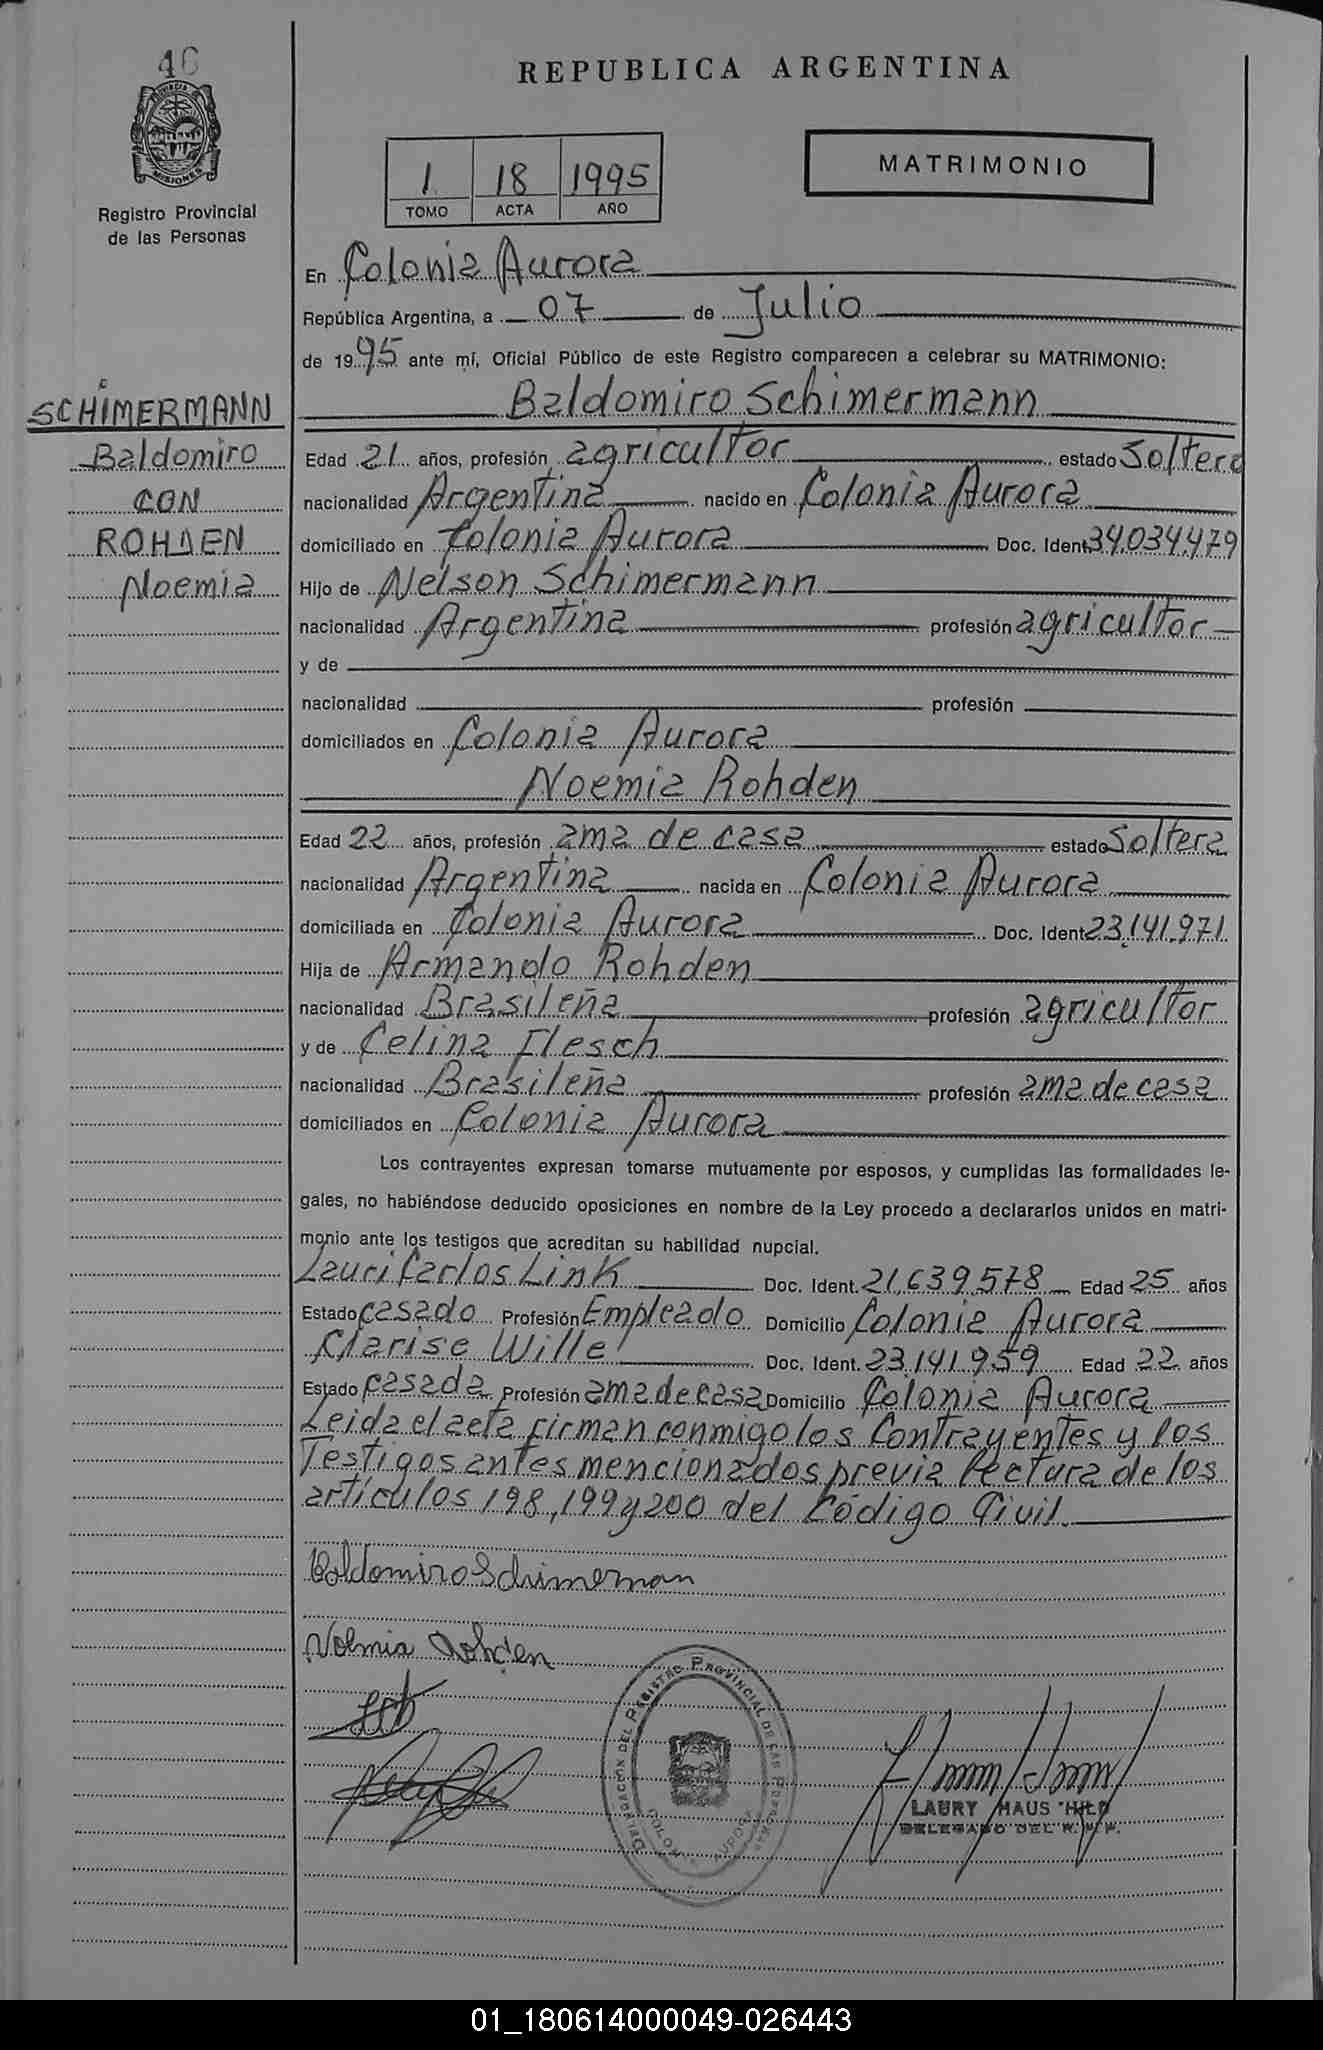 46
REPUBLICA ARGENTINA
PROVINCIA DE
MISIONES
Registro Provincial
de las Personas
1 18 1995
TOMO ACTA AÑO
MATRIMONIO
En Colonia Aurora
República Argentina, a 07 de Julio
de 1995 ante mí, Oficial Público de este Registro comparecen a celebrar su MATRIMONIO:
SCHIMERMANN
Baldomiro
CON
ROHDEN
Noemia
Baldomiro Schimermann
Edad 21 años, profesión agricultor estado Soltero
nacionalidad Argentina nacido en Colonia Aurora
domiciliado en Colonia Aurora Doc. Ident. 34.034.479
Hijo de Nelson Schimermann
nacionalidad Argentina profesión agricultor
y de
nacionalidad profesión
domiciliados en Colonia Aurora
Noemia Rohden
Edad 22 años, profesión ama de casa estado Soltera
nacionalidad Argentina nacida en Colonia Aurora
domiciliada en Colonia Aurora Doc. Ident. 23.141.971
Hija de Armando Rohden
nacionalidad Brasileña profesión agricultor
y de Celina Flesch
nacionalidad Brasileña profesión ama de casa
domiciliados en Colonia Aurora
Los contrayentes expresan tomarse mutuamente por esposos, y cumplidas las formalidades le-
gales, no habiéndose deducido oposiciones en nombre de la Ley procedo a declararlos unidos en matri-
monio ante los testigos que acreditan su habilidad nupcial.
Lauri Carlos Link Doc. Ident. 21.639.578 Edad 25 años
Estado casado Profesión Empleado Domicilio Colonia Aurora
Klarise Wille Doc. Ident. 23.141.959 Edad 22 años
Estado casada Profesión ama de casa Domicilio Colonia Aurora
Leida el acta firman conmigo los Contrayentes y los
Testigos antes mencionados previa lectura de los
artículos 198, 199 y 200 del Código Civil.
Baldomiro Schimerman
Noemia Rohden
DELEGACIÓN DEL REGISTRO PROVINCIAL DE LAS PERSONAS
COLONIA AURORA
LAURY HAUS HILD
DELEGADO DEL R. P. P.
01_180614000049-026443